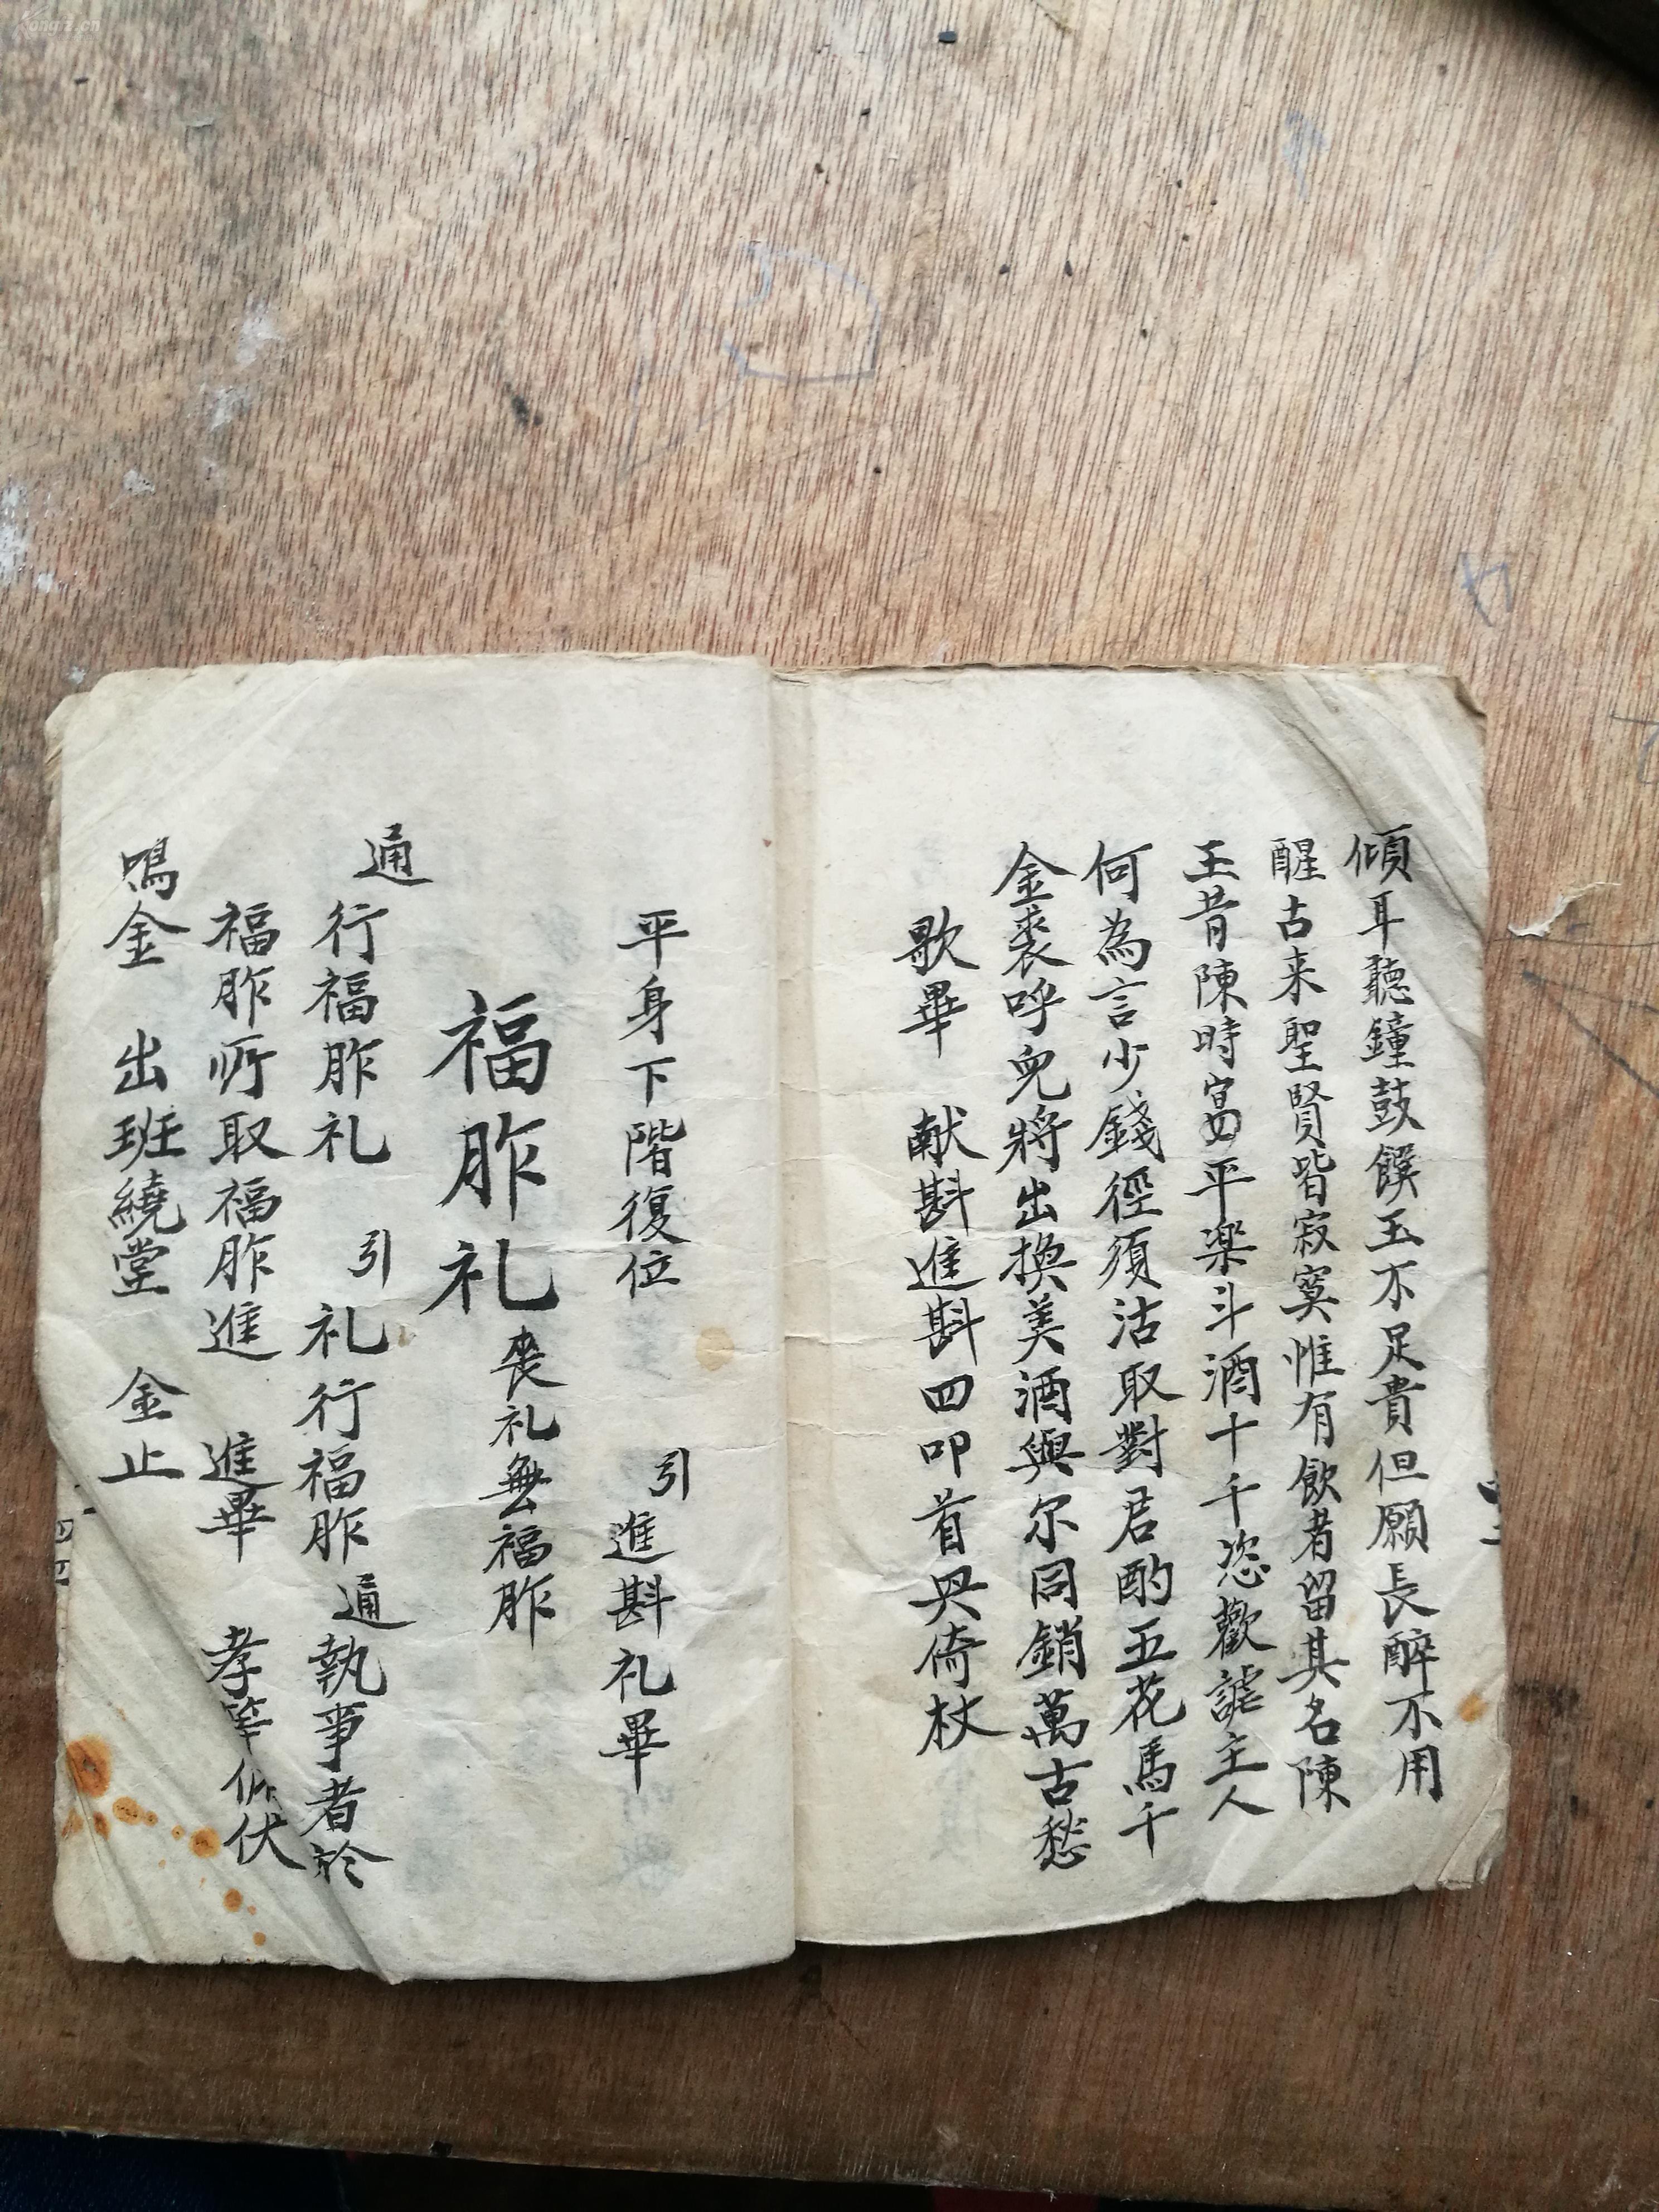 傾耳聽鐘鼓饌玉不足貴但願長醉不用
醒古来聖賢皆寂寞惟有飲者留其名陳
王昔陳時宴平楽斗酒十千恣歡謔主人
何為言少錢徑須沽取對君酌五花馬千
金裘呼兒將出換美酒與尔同銷萬古愁
歌畢 献斟進斟四叩首興倚杖
平身下階復位 引進斟礼畢
福胙礼 喪礼無福胙
通 行福胙礼 引礼行福胙 通執事者於
福胙所取福胙進 進畢 孝等俯伏
鳴金 出班繞堂 金止